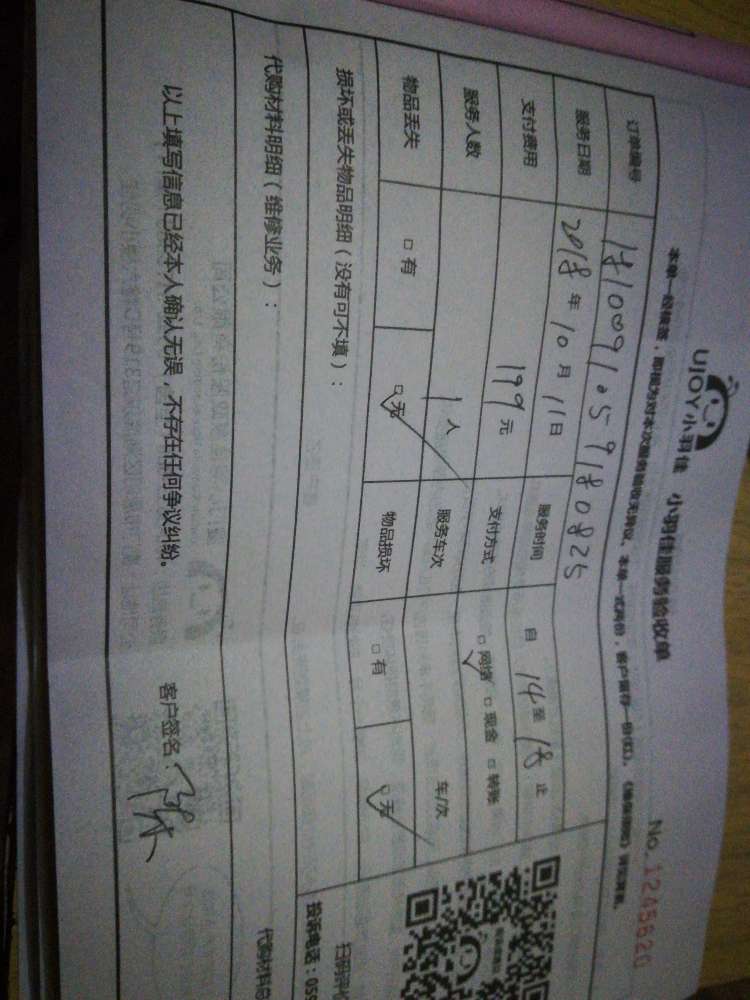 UJOY小羽佳 小羽佳服务验收单
No.1245620
本单一经签签，即视为对本次服务验收无异议，本单一式两份，客户留存一份(红)，
订单编号 1810091059180825
服务日期 2018年10月11日 服务时间 自14至18止
支付费用 199元 支付方式 □网络 □现金 □转账
服务人数 1人 服务车次 车/次
物品丢失 □有 □无 物品损坏 □有 □无
损坏或丢失物品明细（没有可不填）：
扫码评
投诉电话：059
代购材料明细（维修业务）：
代购材料总
以上填写信息已经本人确认无误，不存在任何争议纠纷。 客户签名：